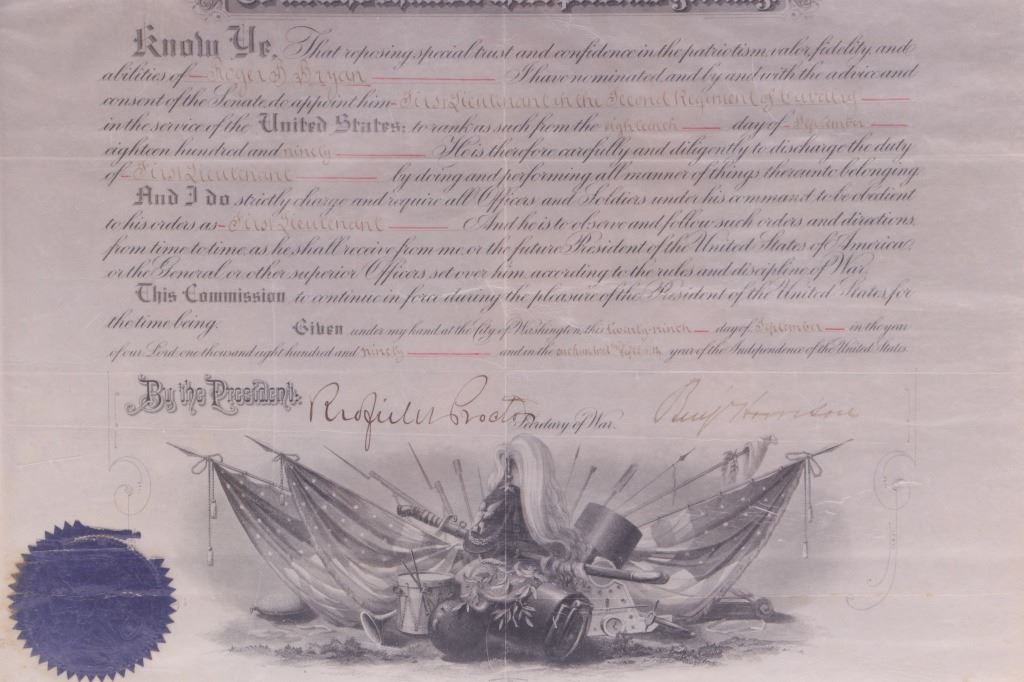 Know Ye, That reposing special trust and confidence in the patriotism, valor, fidelity and
abilities of Roger B. Bryan I have nominated, and by and with the advice and
consent of the Senate, do appoint him First Lieutenant in the Second Regiment of Cavalry
in the service of the United States: to rank as such from the eighteenth day of September
eighteen hundred and ninety He is therefore carefully and diligently to discharge the duty
of First Lieutenant by doing and performing all manner of things thereunto belonging.
And I do strictly charge and require all Officers and Soldiers under his command to be obedient
to his orders as First Lieutenant And he is to observe and follow such orders and directions,
from time to time, as he shall receive from me, or the future President of the United States of America,
or the General or other superior Officers set over him, according to the rules and discipline of War.
This Commission to continue in force during the pleasure of the President of the United States, for
the time being. Given under my hand at the City of Washington, this twenty-ninth day of September in the year
of our Lord one thousand eight hundred and ninety and in the one hundred and fifteenth year of the Independence of the United States.
By the President:
Redfield Proctor Secretary of War. Benj Harrison